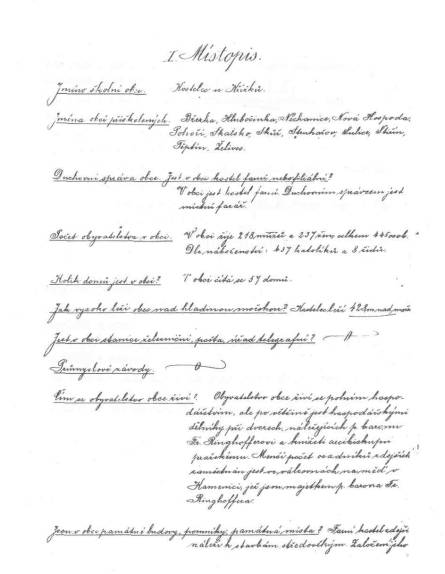 I. Místopis.
Jméno školní obce. Kostelec u Křížků.
Jména obcí přiškolených. Březka, Hlubočinka, Nechanice, Nová Hospoda,
Pohoří, Skalsko, Štiřín,
Téptín, Želivec.
Duchovní správa obce. Jest v obci kostel farní neb filiální?
V obci jest kostel farní. Duchovním správcem jest
místní farář.
Počet obyvatelstva v obci. V obci žije 218 mužů a 237 žen, celkem 445 osob.
Dle náboženství: 437 katolíků a 8 židů.
Kolik domů jest v obci? V obci čítá se 57 domů.
Jak vysoko leží obec nad hladinou mořskou? Kostelec leží 428 m. nad moř.
Jest v obci stanice železniční, pošta, úřad telegrafní?
Průmyslové závody.
Čím se obyvatelstvo obce živí? Obyvatelstvo obce živí se polním hospo-
dářstvím, ale po většině jest hospodářskými
dělníky při dvorech, náležejících p. baronu
Fr. Ringhofferovi a knížeti arcibiskupu
pražskému. Menší počet osadníků zdejších
zaměstnán jest ve válcovnách na měď v
Kamenici, jež jsou majetkem p. barona Fr.
Ringhoffra.
Jsou v obci památní budovy, pomníky, památná místa? Farní kostel zdejší
náleží k stavbám středověkým. Založení jeho